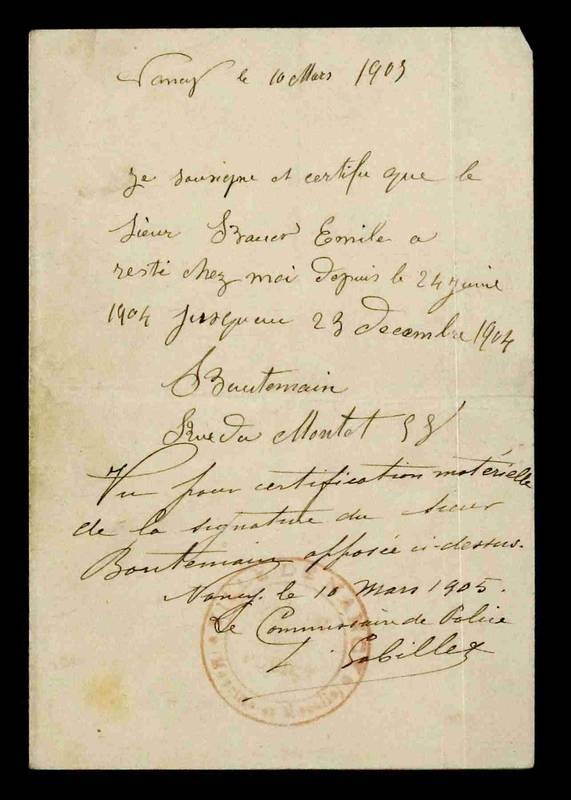 Nancy le 10 Mars 1905
je sousigne et certifie que le
sieur Bauer Emile a
resté chez moi depuis le 24 juine
1904 jusqueau 23 decembre 1904
Boutemain
Rue du Montet 58
Vu pour certification matérielle
de la signature du sieur
Boutemain apposée ci-dessus.
Nancy, le 10 mars 1905.
Le Commissaire de Police
VILLE DE NANCY